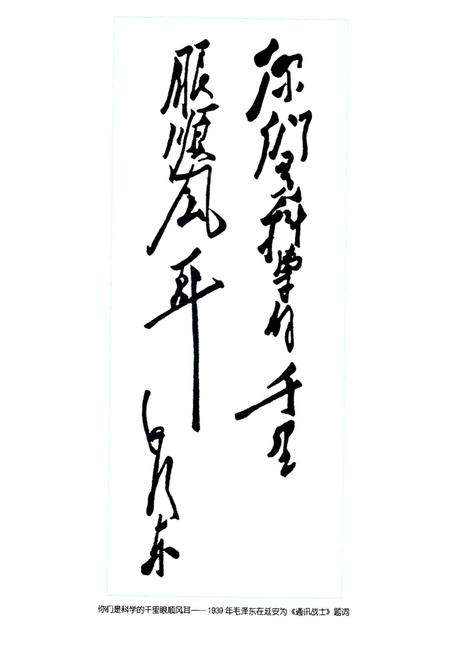 你们是科学的千里
眼顺风耳
毛泽东
你们是科学的千里眼顺风耳——1939年毛泽东在延安为《通讯战士》题词